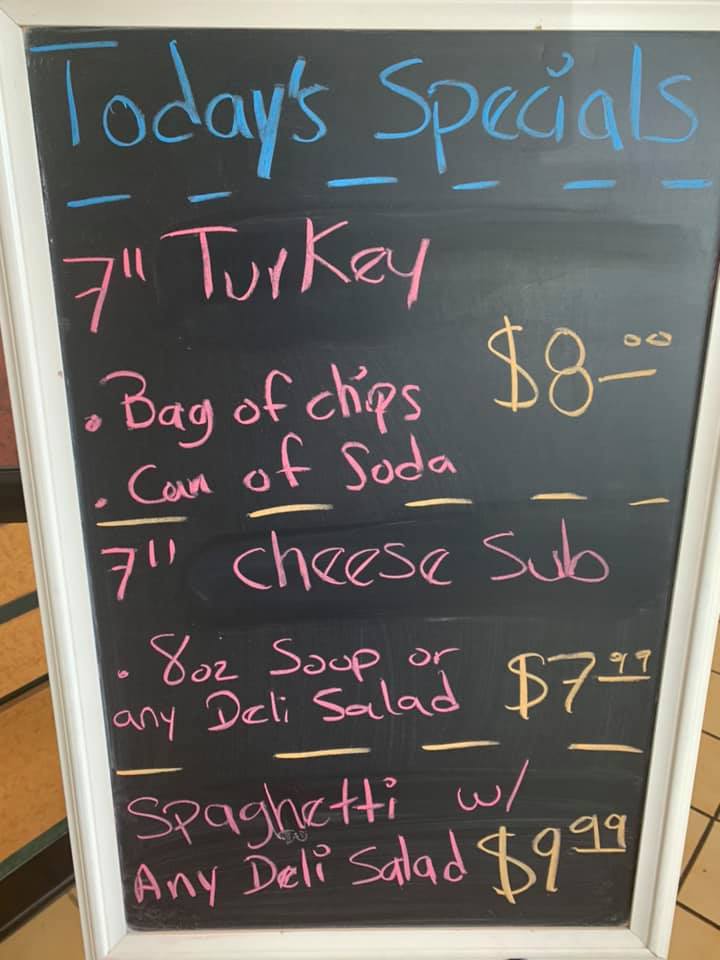 Today's Specials
7" Turkey
$8.00
. Bag of chips
. Can of Soda
7" cheese Sub
. 8oz Soup or
any Deli Salad $7.99
Spaghetti w/
Any Deli Salad $9.99